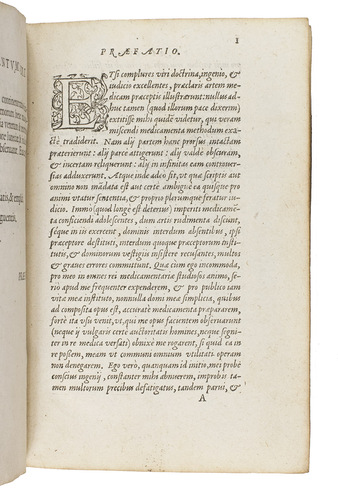 NTVM
continentur
1
PRÆFATIO.
ETSi complures viri doctrina, ingenio, &
iudicio excellentes, præclarè artem me-
dicam præceptis illustrerunt: nullus ad-
huc tamen (quod illorum pace dixerim)
extitisse mihi quidē videtur, qui veram
miscendi medicamenta methodum exa-
ctè tradiderit. Nam alij partem hanc prorsus intactam
præterierunt: alij parcè attigerunt: alij valdè obscuram,
& incertam reliquerunt: alij in infinitas eam controuer-
sias adduxerunt. Atque inde adeò fit, vt quæ scriptis aut
omnino non mādata est aut certè ambiguè ea quisque pro
animi vtatur sententia, & proprio plerumque feratur iu-
dicio. Immò (quod longè est deterius) imperiti medicamē-
tis conficiendi adolescentes, dum artis rudimenta discunt,
séque in iis exercent, dominis interdum absentibus, ipsi
præceptore destituti, interdum quoque præceptorum insti-
tutis, & dominorum vestigiis insistere recusantes, multos
& graues errores committunt. Quæ cùm ego incommoda,
pro meo in omnes rei medicamentariæ studiosos animo, se-
rio apud me frequenter expenderem, & pro publico tam
vitæ meæ instituto, nonnulla domi meæ simplicia, quibus
ad composita opus est, accuratè medicamenta præpararem,
fortè ita vsu venit, vt, qui me opus facientem obseruarunt
(neque ij vulgaris certè auctoritatis homines, neque segni-
ter in re medica versati) obnixè me rogarent, si quid ea in
re possem, meam vt communi omnium vtilitati operam
non denegarem. Ego verò, quanquam id initio, mei probè
conscius ingenij, constanter mihi abnuerem, improbis ta-
men multorum precibus defatigatus, tandem parui, &
A